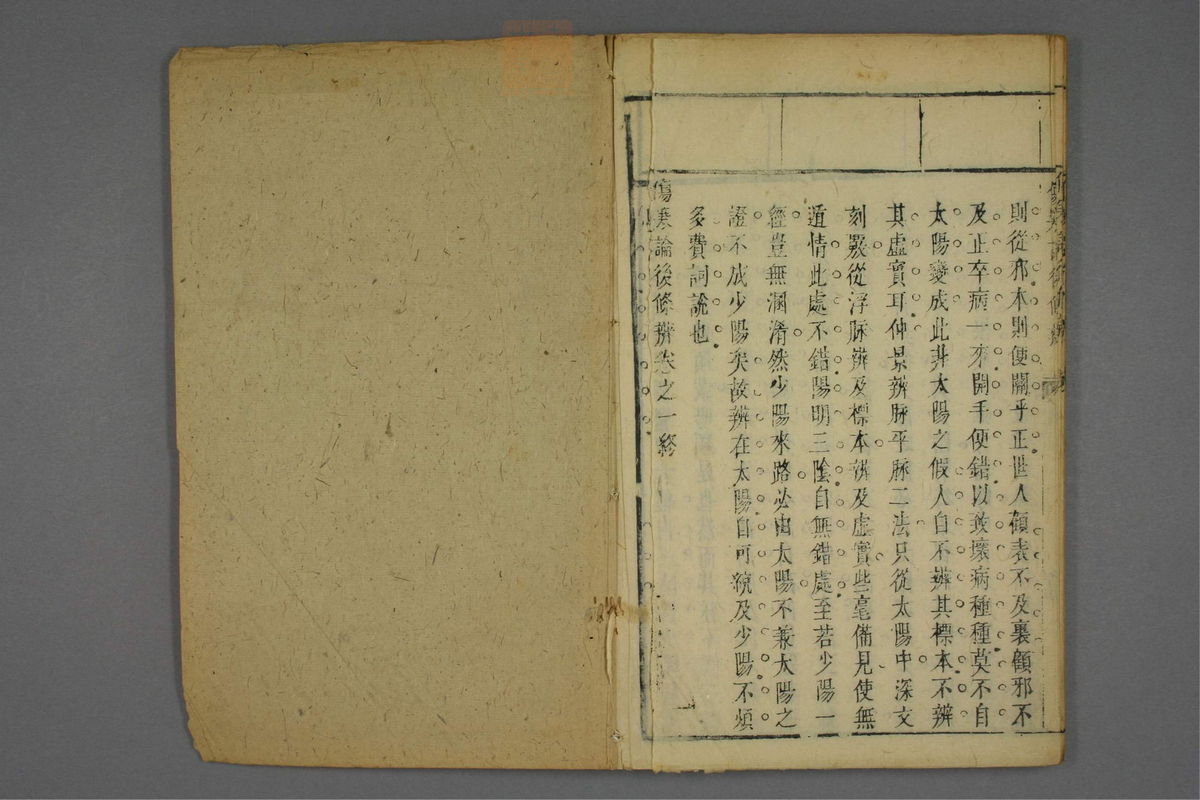 則從邪本則便關乎正世人顧表不及裏顧邪不
及正卒病一來開手便錯以致壞病種種莫不自
太陽變成此非太陽之假人自不辨其標本不辨
其虛實耳仲景辨脉平脉二法只從太陽中深文
刻覈從浮脉辨及標本辨及虛實些毫備見使無
遁情此處不錯陽明三陰自無錯處至若少陽一
經豈無溷淆然少陽來路必由太陽不兼太陽之
證不成少陽矣故辨在太陽自可貌及少陽不煩
多費詞說也
傷寒論後條辨卷之一終